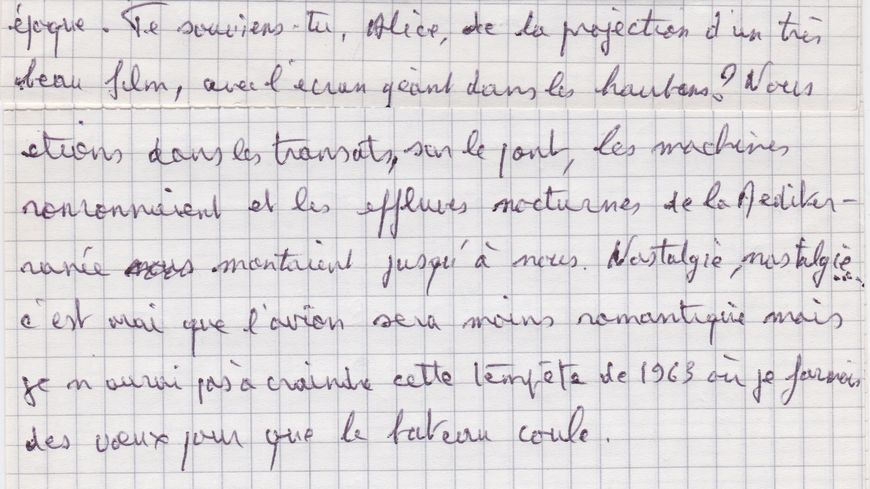 époque. Te souviens-tu, Alice, de la projection d'un très
beau film, avec l'écran géant dans les haubans ? Nous
étions dans les transats, sur le pont, les machines
ronronnaient et les effluves nocturnes de la Méditer-
ranée nous montaient jusqu'à nous. Nostalgie, nostalgie...
c'est vrai que l'avion sera moins romantique mais
je n'aurai pas à craindre cette tempête de 1963 où je formais
des voeux pour que le bateau coule.